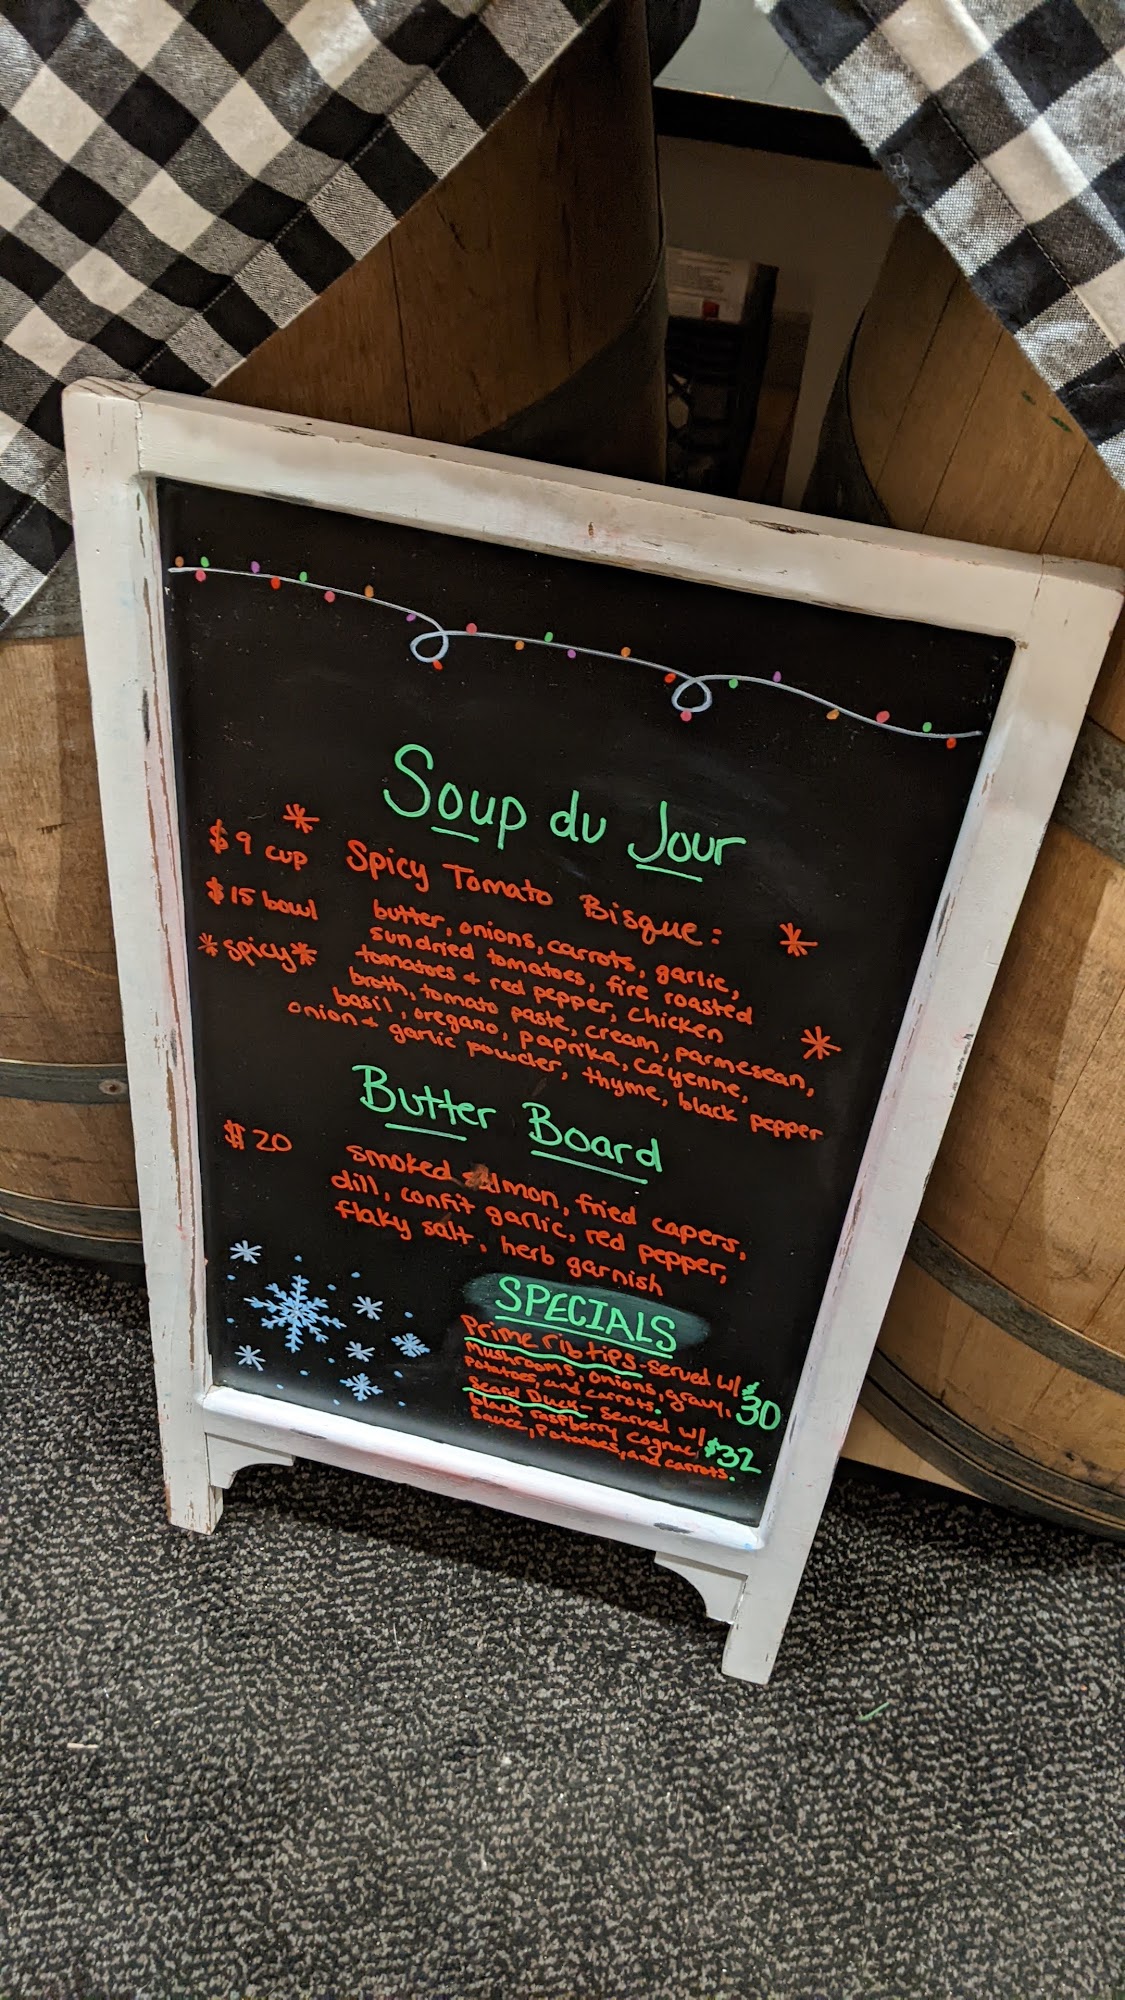 Soup du Jour
$9 cup
Spicy Tomato Bisque:
$15 bowl
*spicy*
butter, onions, carrots, garlic,
sundried tomatoes, fire roasted
tomatoes + red pepper, chicken
broth, tomato paste, cream, parmesean,
basil, oregano, paprika, cayenne,
onion + garlic powder, thyme, black pepper
Butter Board
$20
smoked salmon, fried capers,
dill, confit garlic, red pepper,
flaky salt, herb garnish
SPECIALS
Prime rib tips - served w/
Mushrooms, onions, gravy,
potatoes, and carrots.
$30
Seard Duck - Searved w/
black raspberry cognac
Sauce, potatoes, and carrots.
$32